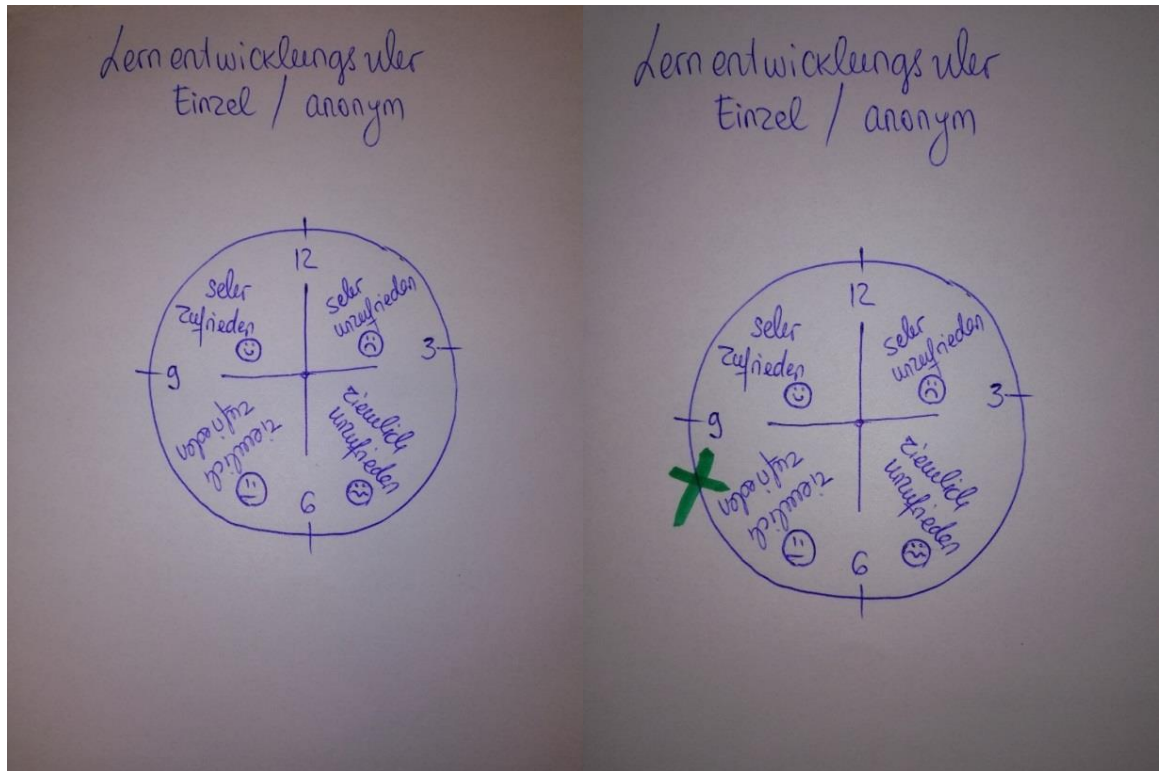 Lernentwicklungsuhr
Einzel / anonym
12
sehr
zufrieden
sehr
unzufrieden
9
3
ziemlich
zufrieden
ziemlich
unzufrieden
6
Lernentwicklungsuhr
Einzel / anonym
12
sehr
zufrieden
sehr
unzufrieden
9
3
ziemlich
zufrieden
ziemlich
unzufrieden
6